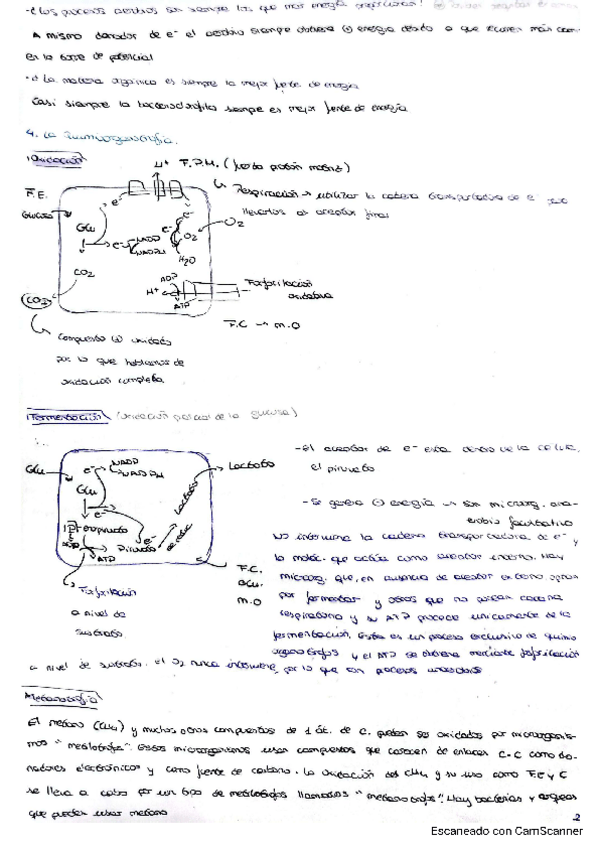 - ¿Los procesos aerobios son siempre los que más energía proporcionan?
A mismo donador de e- el aerobio siempre obtiene (+) energía debido a que recorren más cam-
en la torre de potencial
- ¿La materia orgánica es siempre la mejor fuente de energía
Casi siempre la siempre es mejor fuente de energía
4. La quimiorganotrofía.
Oxidación
H+ F.P.M. (fuerza protón motriz)
↳ Respiración → utilizar la cadena transportadora de e- para
llevarlos al aceptor final
F.E.
Glucosa
Glu
e-
e-
NADP
NADPH
e-
e-
O2
O2
H2O
CO2
CO2
ADP
H+
ATP
Fosforilación
oxidativa
F.C → M.O
Compuesto (+) oxidado
por lo que hablamos de
oxidación completa
Fermentación (oxidación parcial de la glucosa)
Glu
Glu
e-
NADP
NADPH
e-
Piruvato
e-
ATP
Lactato
Lactato
- El aceptor de e- está dentro de la célula,
el piruvato
- Se genera (-) energía → son microorg. ana-
erobio facultativo
No interviene la cadena transportadora de e- y
la moléc. que actúa como aceptor interno. Hay
microorg. que, en ausencia de aceptor externo optan
por fermentar y otros que no poseen cadena
respiratoria y su ATP procede únicamente de la
fermentación. Este es un proceso exclusivo de quimio
organotrofos y el ATP se obtiene mediante fosforilación
a nivel de sustrato. El O2 nunca interviene, por lo que son procesos anaerobios
Fosforilación
a nivel de
sustrato
F.C.
M.O
Metanotrofía
El metano (CH4) y muchos otros compuestos de 1 át. de C. pueden ser oxidados por microorganis-
mos "metilótrofos". Estos microorganismos usan compuestos que carecen de enlaces C-C como do-
nadores electrónicos y como fuente de carbono. La oxidación del CH4 y su uso como F.E y C
se lleva a cabo por un tipo de metilótrofos llamados "metanotrofos". Hay bacterias y arqueas
que pueden usar metano
2
Escaneado con CamScanner